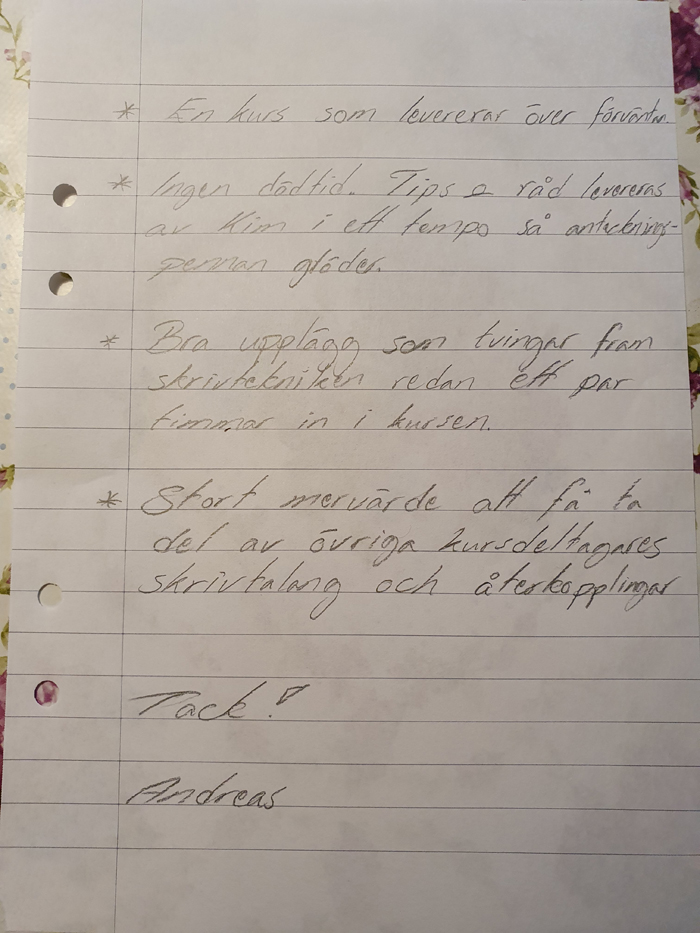 * En kurs som levererar över förväntan
* Ingen dödtid. Tips & råd levereras
av Kim i ett tempo så antecknings-
pennan glöder.
* Bra upplägg som tvingar fram
skrivtekniken redan ett par
timmar in i kursen.
* Stort mervärde att få ta
del av övriga kursdeltagares
skrivtalang och återkopplingar
Tack!
Andreas